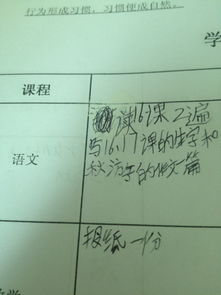 行为形成习惯，习惯便成自然。
学
课程
语文
读16课2遍
写16.17课的生字和
秋游的作文一篇
报纸一份